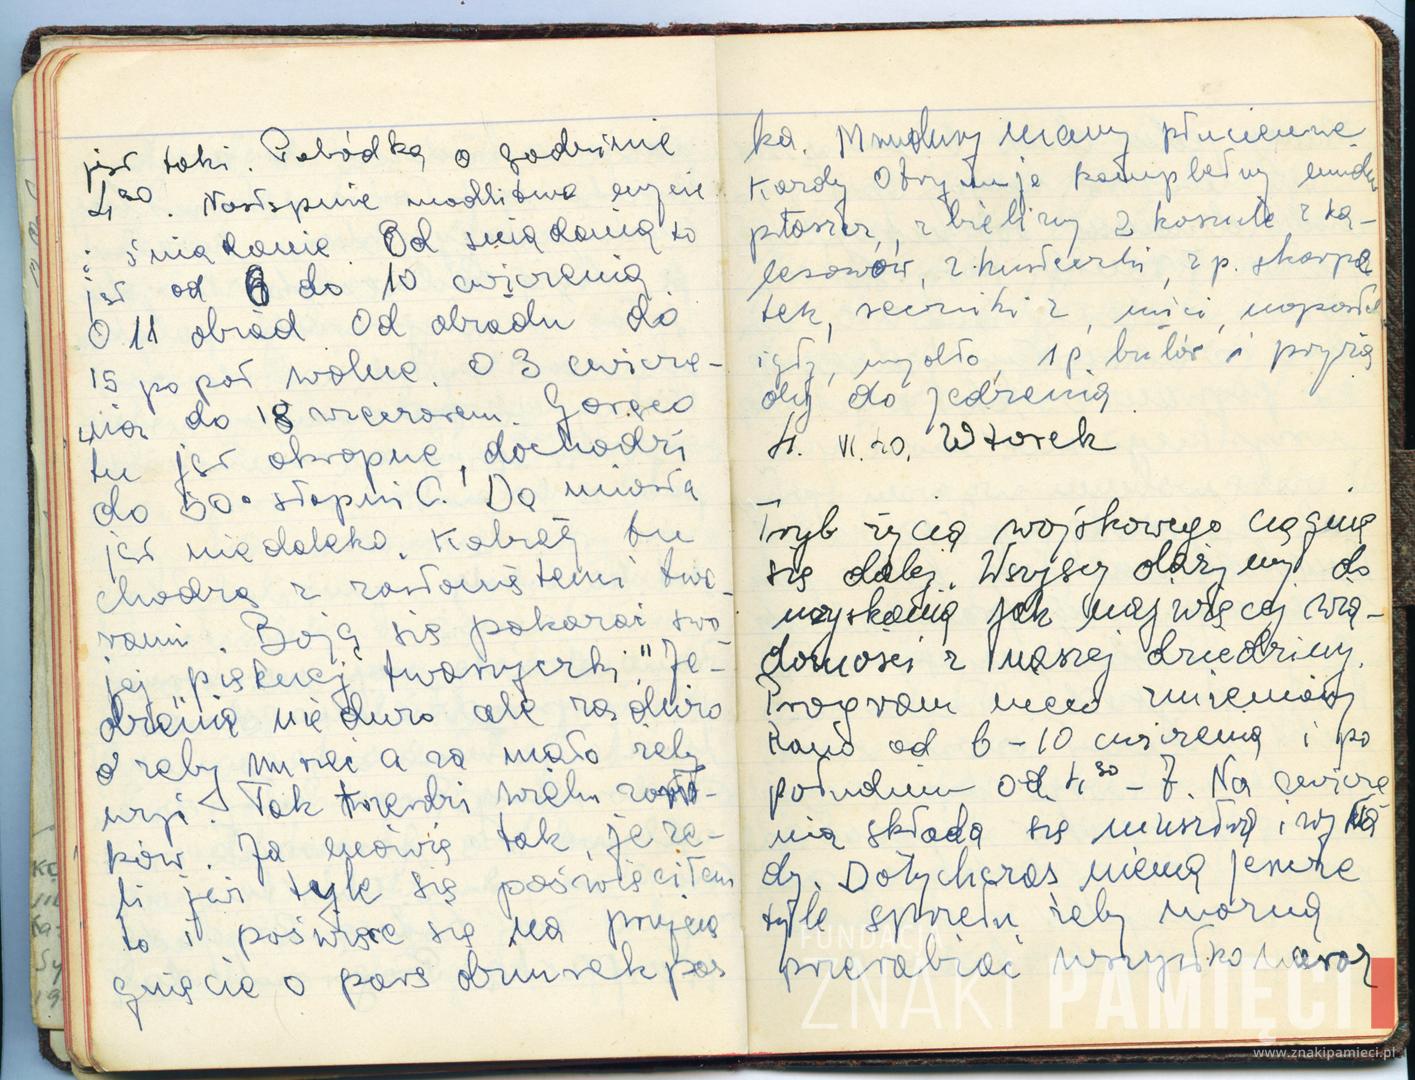 jest taki. Pobódka o godzinie
4³⁰. Następnie modlitwa mycie
i śniadanie. Od śniadania to
jest od 6 do 10 cwiczenia
O 11 obiad Od obiadu do
15 po poł wolne. O 3 cwicze-
nia do 18 wieczorem. Gorąco
tu jest okropne, dochodzi
do 50° stopni C. Do miasta
jest niedaleko. Kobiety tu
chodzą z zasłoniętemi twa-
rzami. Boją się pokazać swo-
jej "pięknej twarzyczki." Je-
dzenia nie dużo ale za dużo
żeby umrzeć a za mało żeby
wyżyć. Tak twierdzi wielu
Ja mówię tak, jeże-
li już tyle się poświęciłem
to i poświęcę się na przycią
gnięcie o parę dziurek pas
ka. Mundury mamy płócienne
Każdy Otrzymuje kompletny mundur
płaszcz, z bielizny 2 koszule 2 ka-
lesonów, 2 chusteczki, 2 p. skarpe
tek, ręczniki 2, nici,
igły, mydło, 1 p. butów i przyrzą
dy do jedzenia.
4. VI. 20. Wtorek
Tryb życia wojskowego ciągnie
się dalej. Wszyscy dążymy do
uzyskania jak najwięcej wia-
domości z naszej dziedziny.
Program nieco zmieniony
Rano od 6-10 cwiczenia i po
południu od 4³⁰ - 7. Na cwicze
nia składa się musztra i wykła
dy. Dotychczas niema jeszcze
tyle sprzętu żeby można
przerabiać wszystko naraz
FUNDACJA
ZNAKI PAMIĘCI
www.znakipamieci.pl